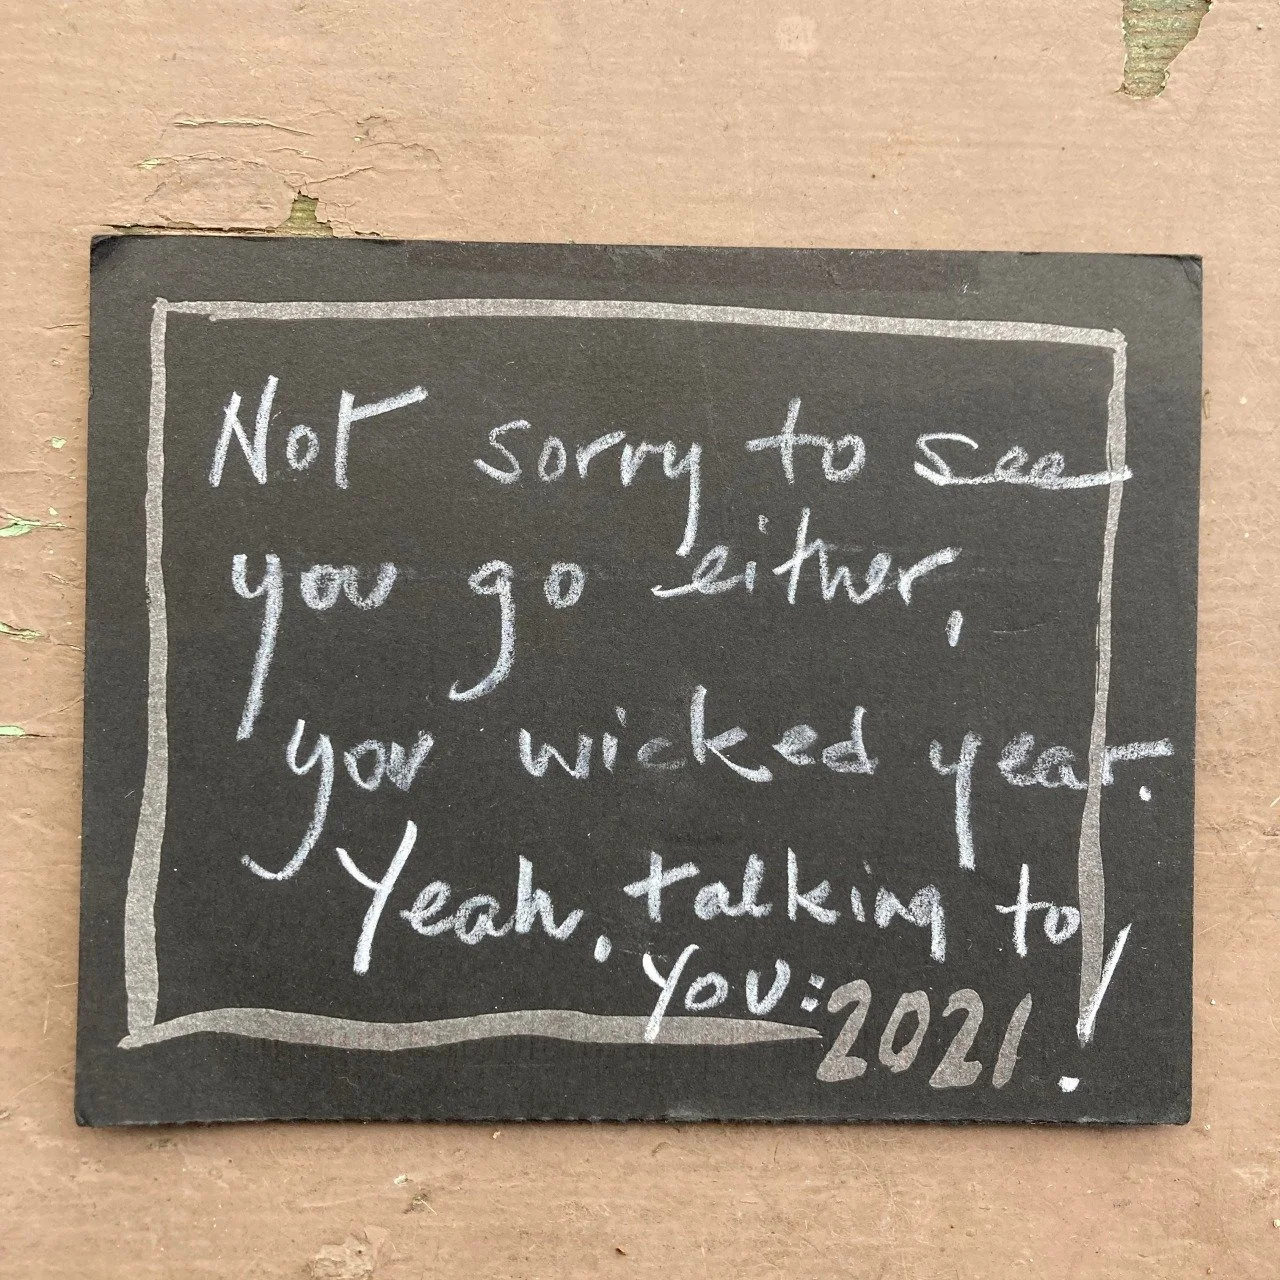 Not sorry to see
you go either,
you wicked year.
Yeah, talking to
you: 2021!